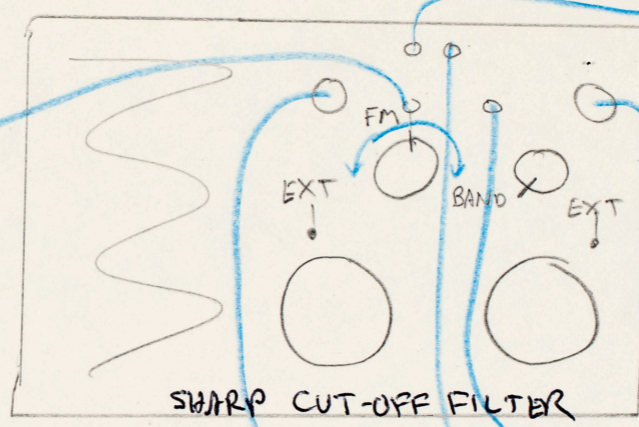 FM
EXT
BAND
EXT
SHARP CUT-OFF FILTER